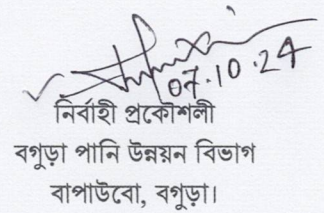 07.10.24
নির্বাহী প্রকৌশলী
বগুড়া পানি উন্নয়ন বিভাগ
বাপাউবো, বগুড়া।